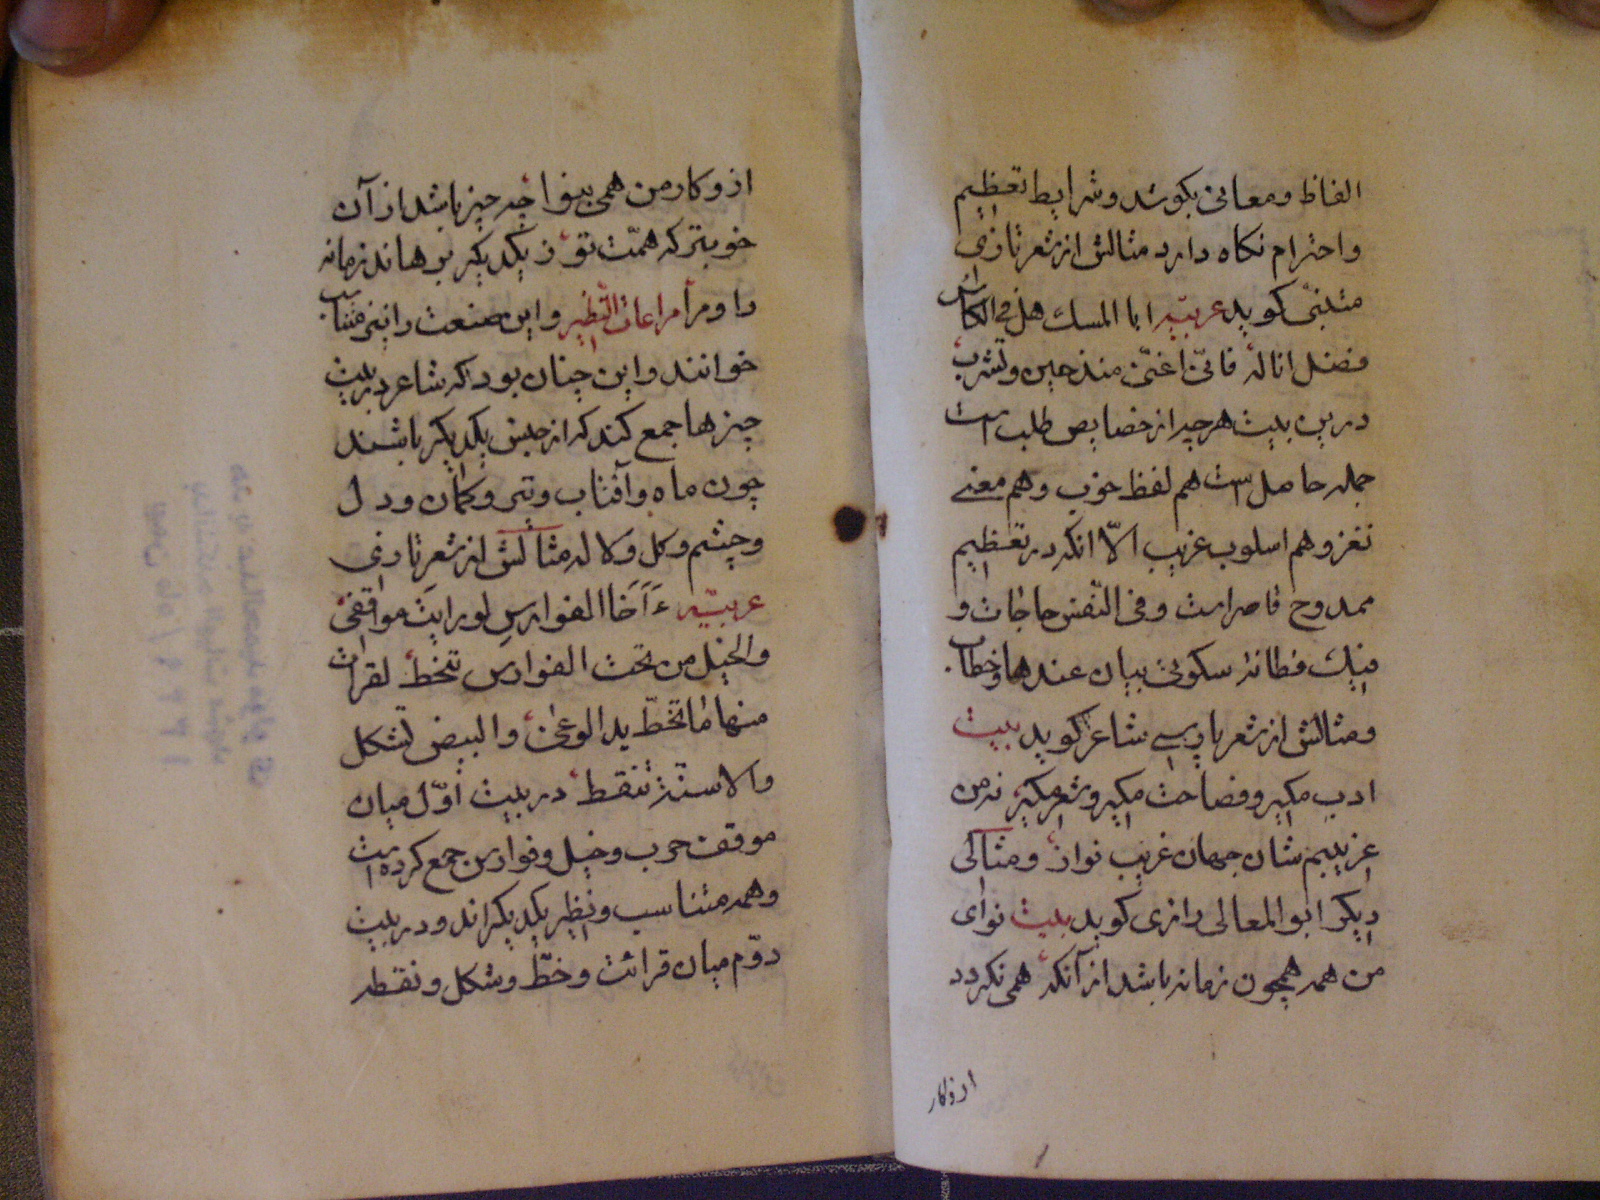 الفاظ ومعانی بکوشد وشرایط تعظیم
واحترام نکاه دارد مثالش از شعر تازی
متنبّی کوید عربیّه ابا المسك هل فی الکاس
فضل اناله فانّی اغنّی منذ حین وتشرب
درین بیت هرچه از خصایص طلب است
جمله حاصل است هم لفظ خوب وهم معنی
نغز وهم اسلوب غریب الّا انکه در تعظیم
ممدوح قاصر است وفی النّفس حاجات و
فیك فطانة سکوتی بیان عندها وخطاب
ومثالش از شعر پارسی شاعر کوید بیت
ادب مکیر وفصاحت مکیر وشعر مکیر نه من
غریبم شاه جهان غریب نواز ومثالی
دیکر ابو المعالی رازی کوید بیت نوای
من همه همچون زمانه باشد از آنکه همی نکردد
ازو کار
ازو کار من همی بنوا چه چیز باشد از آن
خوبتر که همّت تو ز یکدیکر برهاند زمانه
را ومرا مراعات النّظیر واین صنعت را نیز متناسب
خوانند واین چنان بود که شاعر در بیت
چیزها جمع کند که از جنس یکدیکر باشند
چون ماه وآفتاب وتیر وکمان ودل
وچشم وکل ولاله مثالش از شعر تازی
عربیّه ءَاَخَا الفوارسِ لو رایتَ مواقفی
والخیل من تحت الفوارس تنحط لقرات
منها ما تخطّ ید الوغی والبیض تشکل
والاسنّة تنقط در بیت اوّل میان
موقف حرب وخیل وفوارس جمع کرده است
وهمه متناسب ونظیر یکدیکراند ودر بیت
دوّم میان قرائت وخطّ وشکل ونقطه